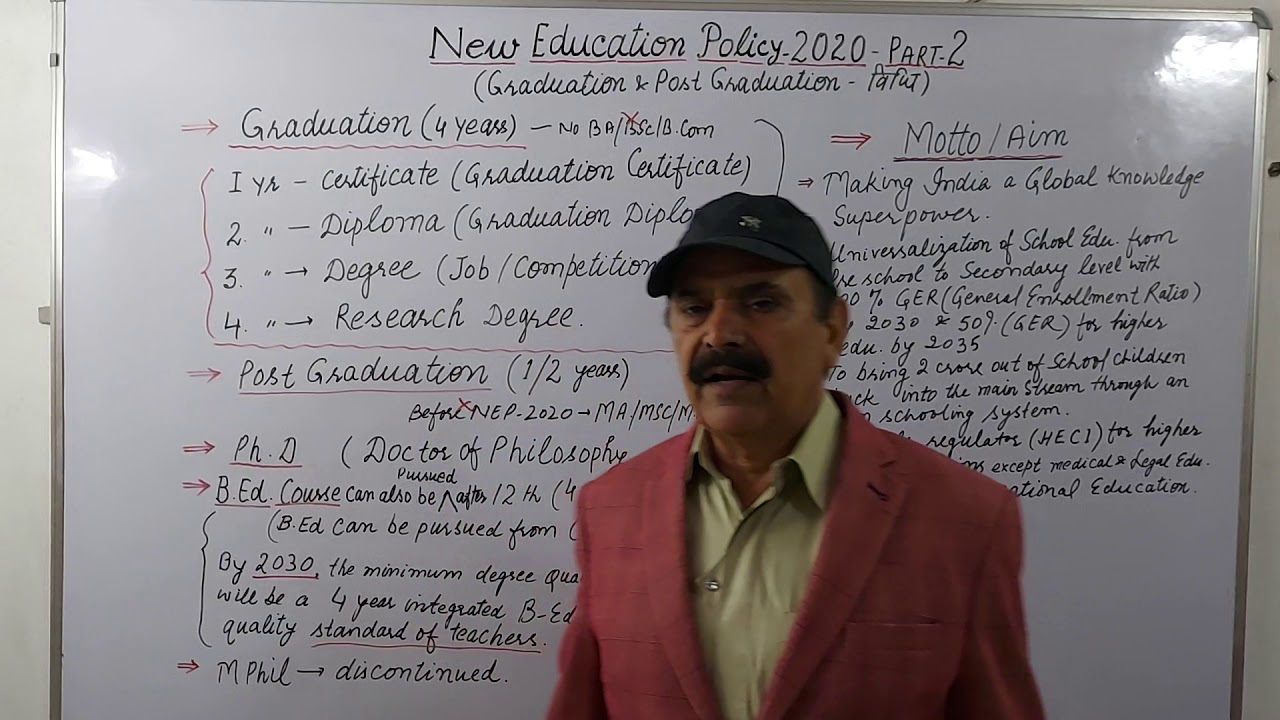 New Education Policy-2020-Part-2
(Graduation & Post Graduation -
⇒ Graduation (4 years) — No BA/BSc/B.Com
I yr – Certificate (Graduation Certificate)
2. " – Diploma (Graduation Diplo
3. " → Degree (Job/Competition
4. " → Research Degree.
⇒ Post Graduation (1/2 years)
Before NEP-2020→MA/MSC/M
⇒ Ph.D (Doctor of Philosophy
⇒ B.Ed. Course can also be Pursued after 12th (4
(B.Ed can be pursued from
By 2030, the minimum degree qua
will be a 4 year integrated B-Ed
quality standard of teachers.
⇒ MPhil → discontinued.
⇒ Motto/Aim
⇒ Making India a Global Knowledge
Superpower.
Universalization of School Edu. from
school to Secondary level with
00% GER (General Enrollment Ratio)
2030 & 50% (GER) for higher
edu. by 2035
To bring 2 crore out of School children
into the main stream through an
schooling system.
regulator (HECI) for higher
except medical & Legal Edu.
ational Education.